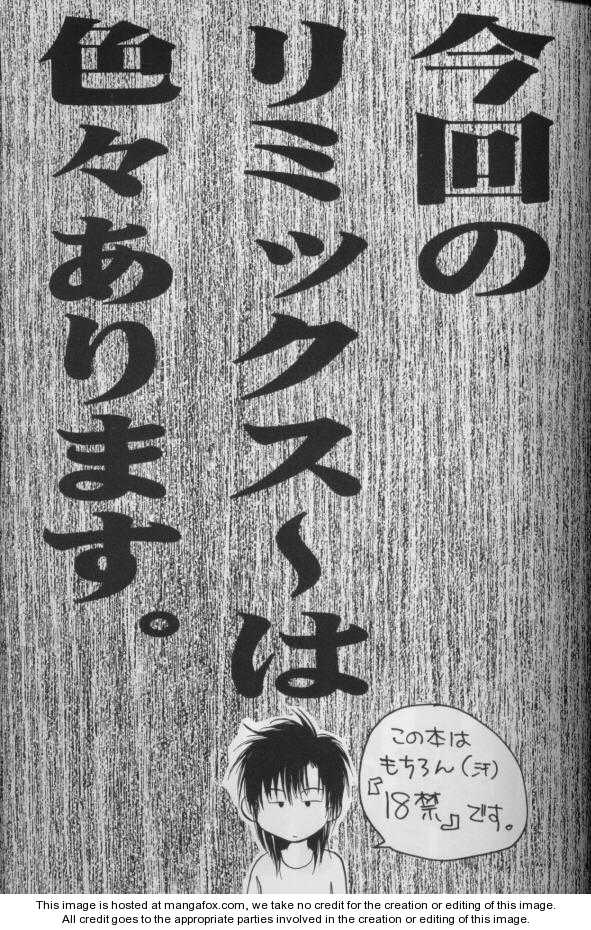 今回の
リミックス～は
色々あります。
この本は
もちろん（汗）
『18禁』です。
This image is hosted at mangafox.com, we take no credit for the creation or editing of this image.
All credit goes to the appropriate parties involved in the creation or editing of this image.